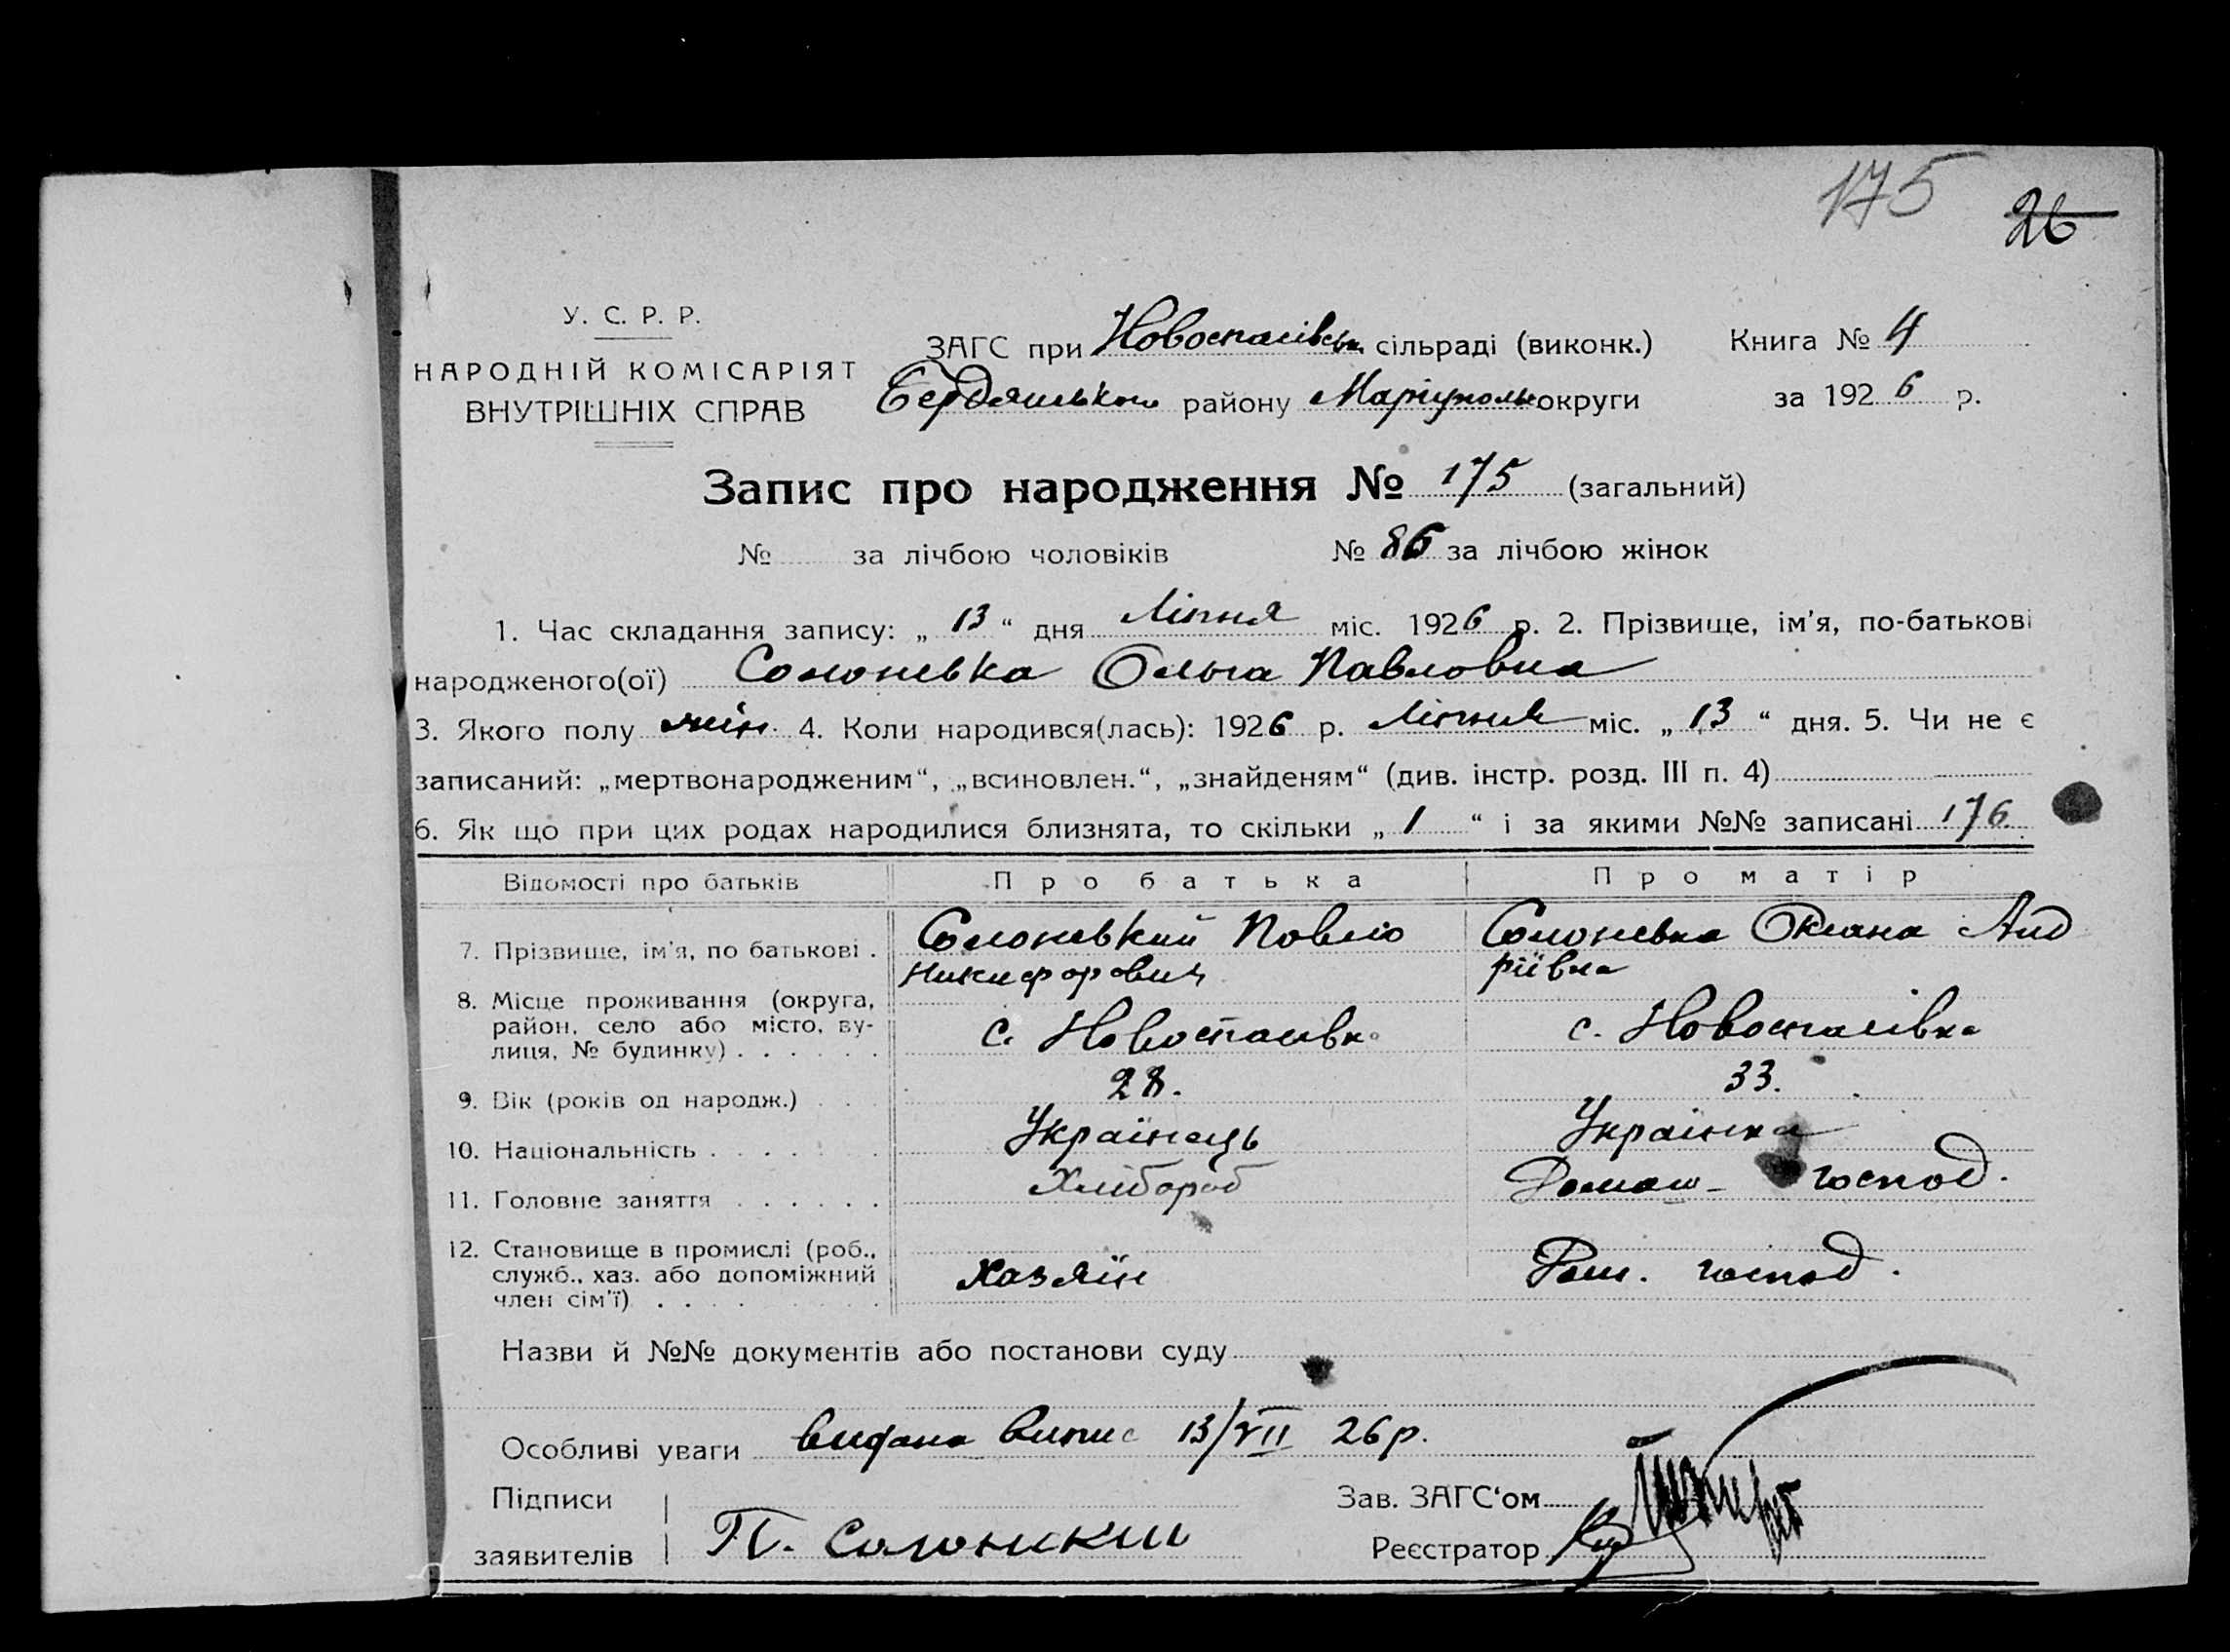 175
26
У. С. Р. Р.
НАРОДНІЙ КОМІСАРІЯТ
ВНУТРІШНІХ СПРАВ
ЗАГС при Новоспасівськ сільраді (виконк.) Книга № 4
Бердянського району Маріупольс округи за 1926 р.
Запис про народження № 175 (загальний)
№ за лічбою чоловіків № 86 за лічбою жінок
1. Час складання запису: „ 13 “ дня Липня міс. 1926 р. 2. Прізвище, ім'я, по-батькові
народженого(ої) Солонецька Ольга Павловна
3. Якого полу жін. 4. Коли народився(лась): 1926 р. Липня міс. „ 13 “ дня. 5. Чи не є
записаний: „мертвонародженим“, „всиновлен.“, „знайденям“ (див. інстр. розд. III п. 4)
6. Як що при цих родах народилися близнята, то скільки „ 1 “ і за якими №№ записані 176
Відомості про батьків Про батька Про матір
7. Прізвище, ім'я, по батькові . Солонецький Павло Солонецька Оксана Анд
Никифорович ріївна
8. Місце проживання (округа,
район, село або місто, ву-
лиця, № будинку) . . . . . . с. Новоспасівка с. Новоспасівка
9. Вік (років од народж.) . . . 28. 33.
10. Національність . . . . . . Українець Українка
11. Головне заняття . . . . . . Хлібороб Домаш- господ.
12. Становище в промислі (роб.,
служб., хаз. або допоміжний Хазяїн Дом. господ.
член сім'ї) . . . .
Назви й №№ документів або постанови суду
Особливі уваги видана випис 13/VII 26 р.
Підписи Зав. ЗАГС‘ом
заявителів П. Солоникий Реєстратор